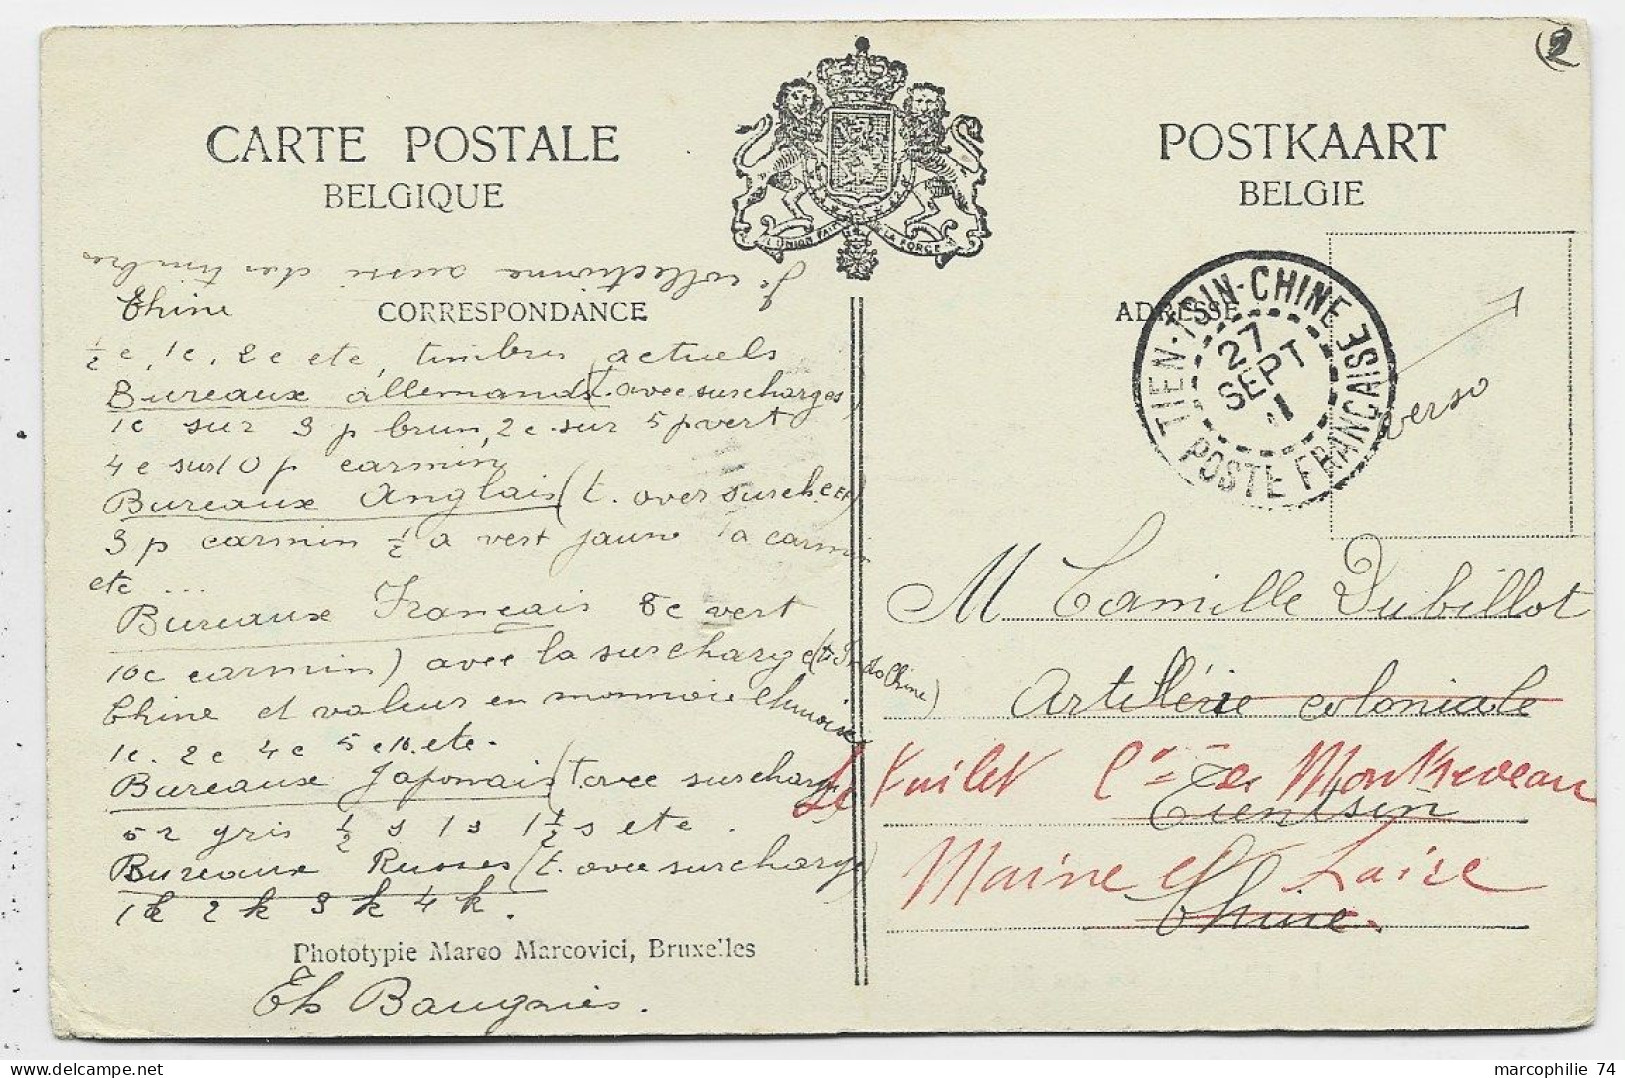 (2)
CARTE POSTALE
BELGIQUE
L'UNION FAIT LA FORCE
POSTKAART
BELGIE
Je collectionne aussi des timbres
Chine
CORRESPONDANCE
½ c, 1c, 2c etc, timbres actuels
Bureaux allemands (t. avec surcharges)
1c sur 3 p brun, 2c sur 5 p vert
4c sur 10 p carmin
Bureaux Anglais (t. avec surch. CEF)
3 p carmin ½ a vert jaune 1a carmin
etc ...
Bureaux Français 5c vert
10c carmin) avec la surcharge (t. Indo Chine)
Chine et valeur en monnaie chinoise
1c. 2c 4c 5c 10. etc.
Bureaux Japonais (t. avec surcharge
5 r gris ½ s 1s 1½ s etc.
Bureaux Russes (t. avec surcharge)
1k 2k 3k 4k.
Phototypie Marco Marcovici, Bruxelles
Th Baugnies.
ADRESSE
TIEN-TSIN-CHINE
27
SEPT
11
POSTE FRANÇAISE
verso
M Camille Dubillot
Artillerie coloniale
Le Fuilet Cⁿ de Montreveau
Tientsin
Maine et Loire
Chine.
marcophilie 74